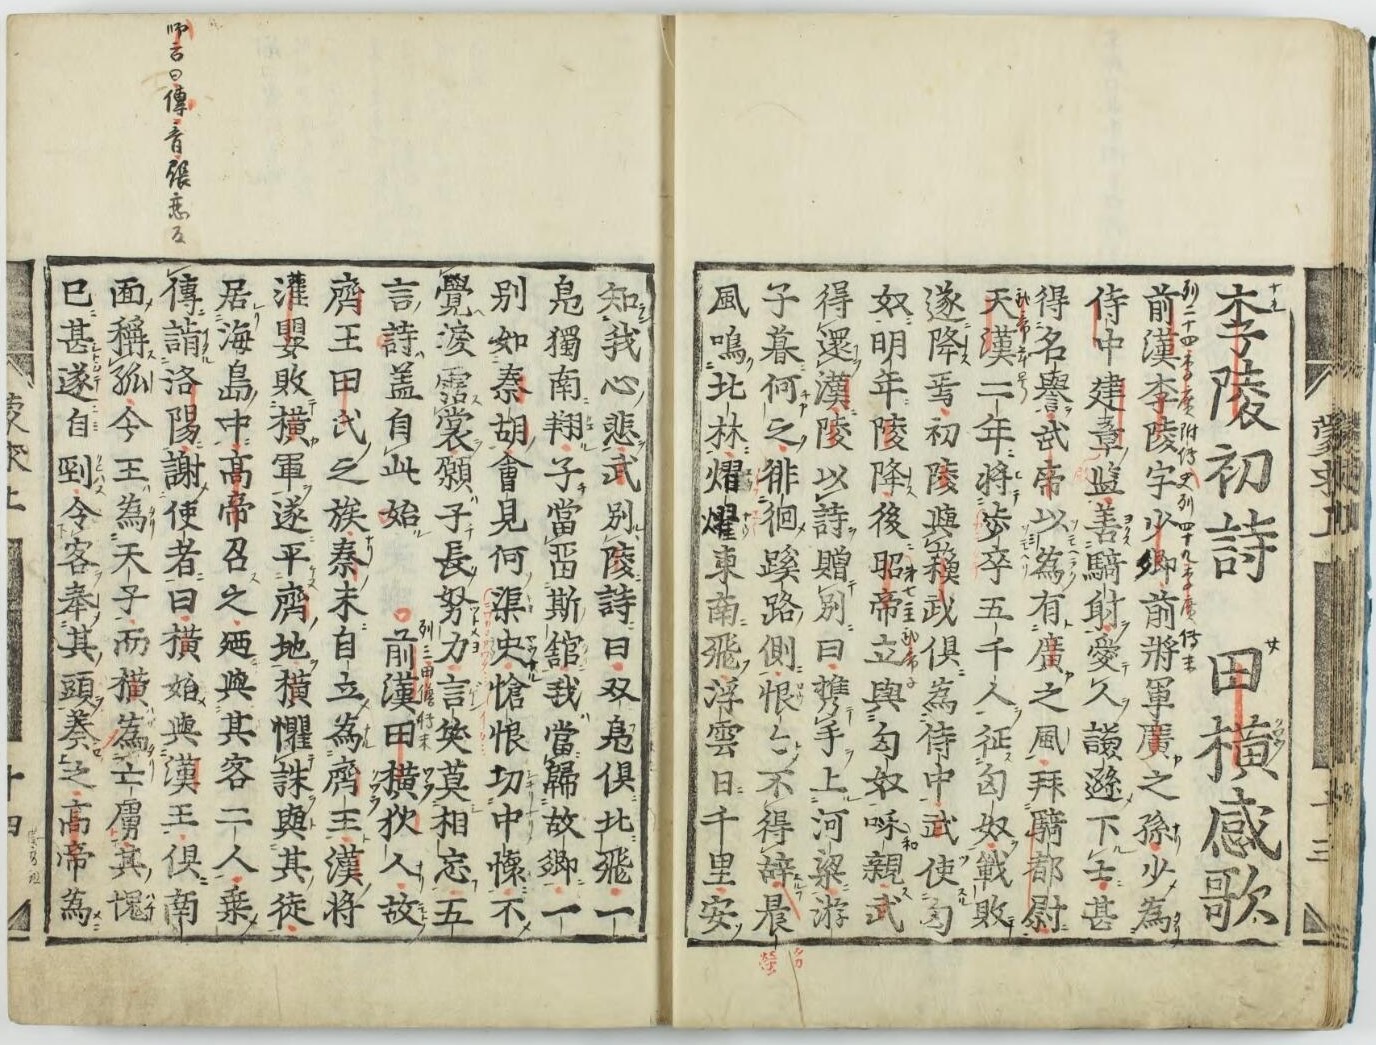 李陵初詩　田橫感歌
前漢李陵字少卿前將軍廣之孫少為
侍中建章監善騎射愛人謙遜下士甚
得名譽武帝以為有廣之風拜騎都尉
天漢二年將步卒五千人征匈奴戰敗
遂降焉初陵與蘓武俱為侍中武使匈
奴明年陵降後昭帝立與匈奴咊親武
得還漢陵以詩贈別曰携手上河梁游
子暮何之徘徊蹊路側恨〻不得辭晨
風鳴北林熠燿東南飛浮雲日千里安
知我心悲武別陵詩曰双鳧俱北飛一
鳧獨南翔子當畱斯舘我當歸故鄉一
別如秦胡會見何渠央愴恨切中懷不
覺淚霑裳願子長努力言笑莫相忘五
言詩盖自此始　前漢田橫狄人故
齊王田氏之族秦末自立為齊王漢將
灌嬰敗橫軍遂平齊地橫懼誅與其徒
居海島中高帝召之廼與其客二人乗
傳詣洛陽謝使者曰橫始與漢王俱南
面稱孤今王為天子而橫為亡虜其愧
巳甚遂自剄令客奉其頭奏之高帝為
蒙求上
十三
十四